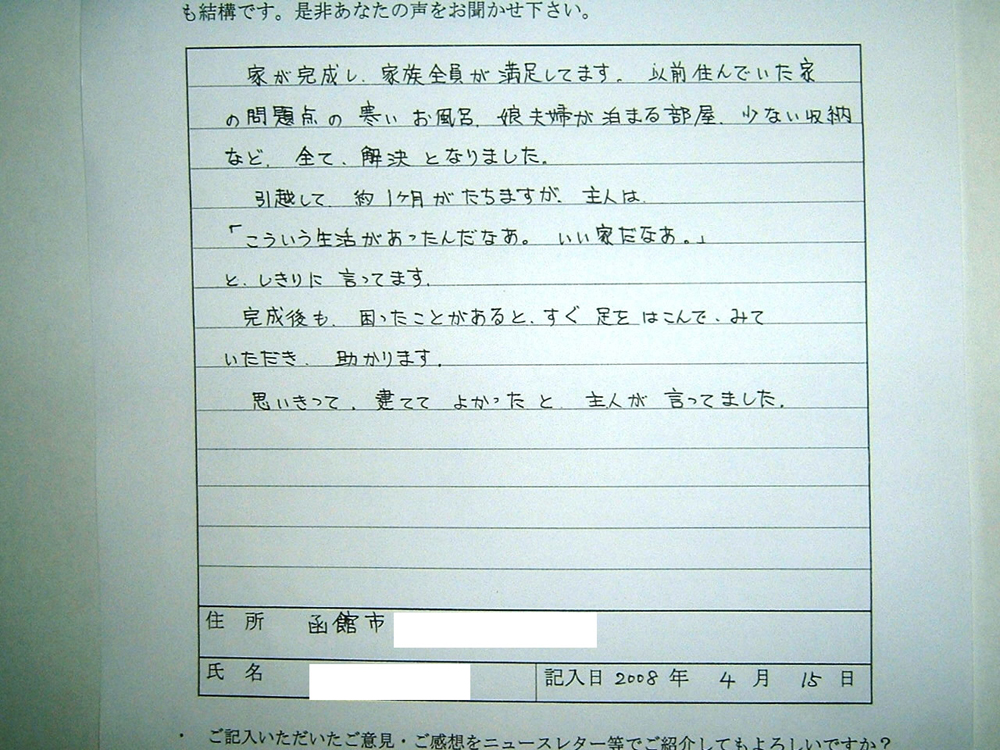 も結構です。是非あなたの声をお聞かせ下さい。
家が完成し、家族全員が満足してます。以前住んでいた家
の問題点の寒いお風呂、娘夫婦が泊まる部屋、少ない収納
など、全て、解決となりました。
引越して約1ヶ月がたちますが、主人は、
「こういう生活があったんだなあ。いい家だなあ。」
と、しきりに言ってます。
完成後も、困ったことがあると、すぐ足をはこんで、みて
いただき、助かります。
思いきって、建ててよかったと、主人が言ってました。
住所 函館市
氏名 記入日 2008年 4月 15日
・ ご記入いただいたご意見・ご感想をニュースレター等でご紹介してもよろしいですか？